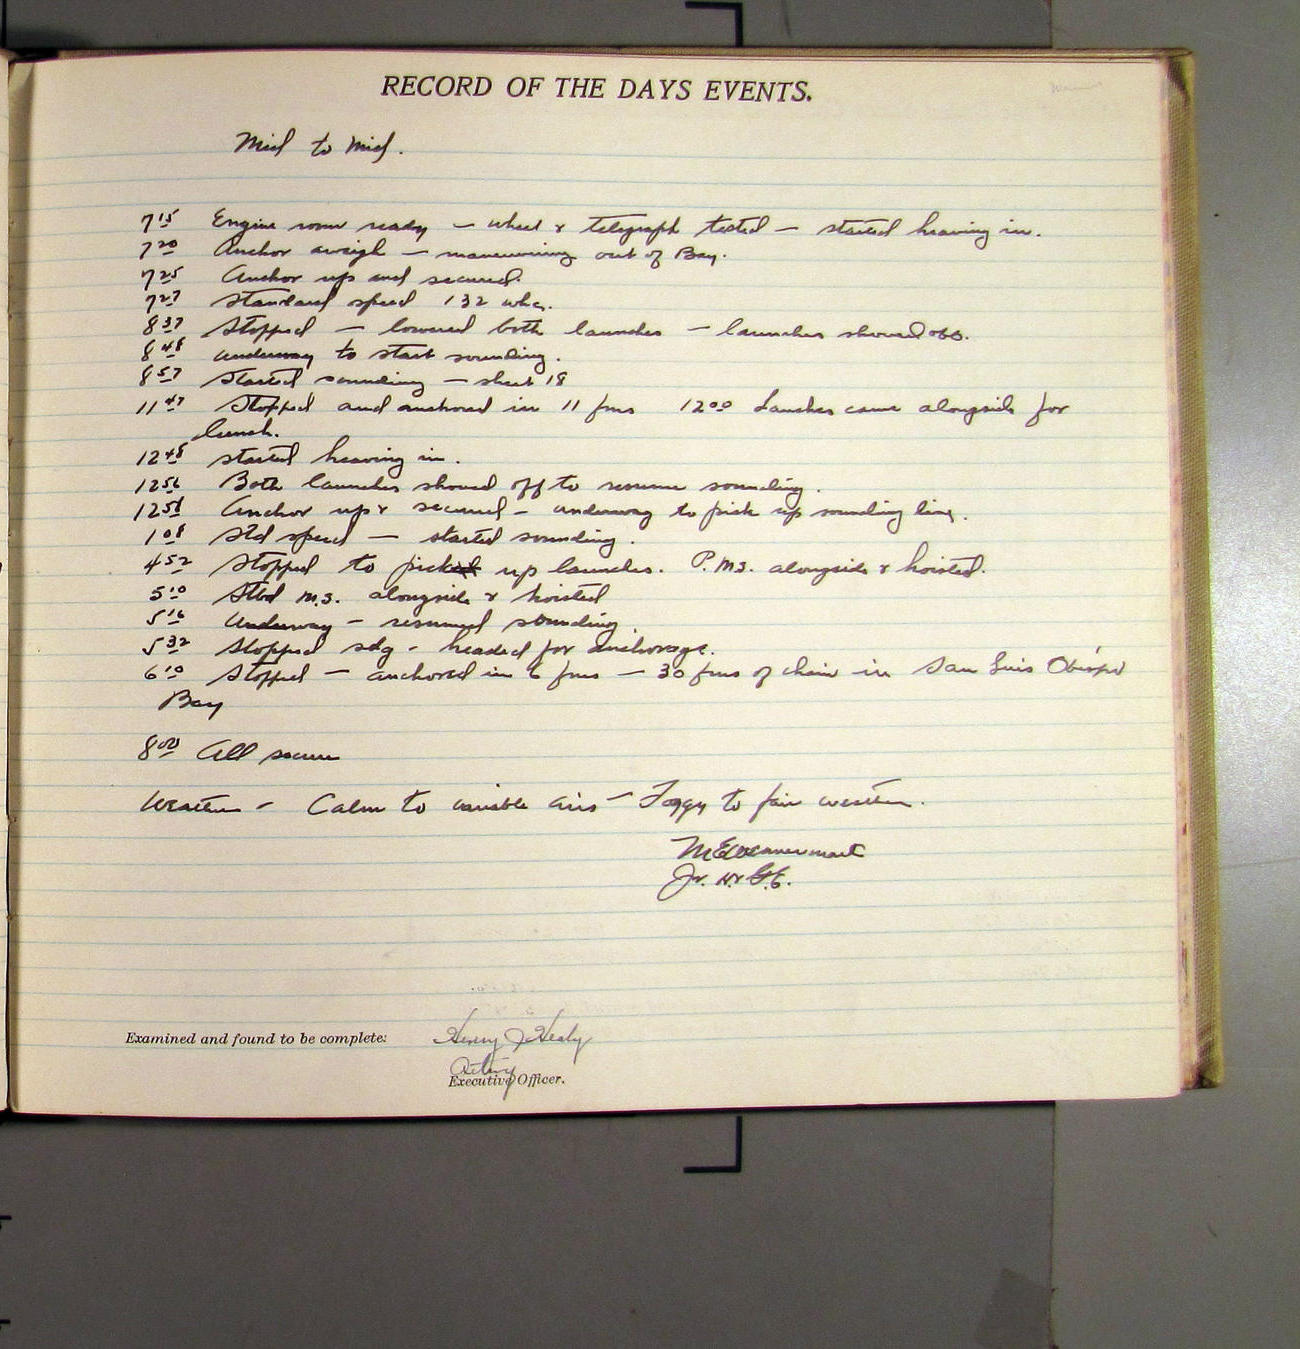 RECORD OF THE DAYS EVENTS.
Mid to Mid.
7 15 Engine room ready — wheel & telegraph tested — started heaving in.
7 20 Anchor aweigh — maneuvering out of Bay.
7 25 Anchor up and secured.
7 27 Standard speed 132 whc.
8 37 Stopped — lowered both launches — launches shoved off.
8 48 Underway to start sounding.
8 57 Started sounding — sheet 18
11 47 Stopped and anchored in 11 fms 12 00 Launches came alongside for
lunch.
12 48 started heaving in.
12 56 Both launches shoved off to resume sounding.
12 58 Anchor up & secured — underway to pick up sounding line.
1 08 Std speed — started sounding.
4 52 Stopped to pick up launches. P.M.S. alongside & hoisted.
5 10 Stbd M.S. alongside & hoisted
5 16 Underway — resumed sounding.
5 32 Stopped sdg - headed for anchorage.
6 10 Stopped — anchored in 6 fms — 30 fms of chain in San Luis Obispo
Bay
8 00 All secure
Weather - Calm to variable airs — Foggy to fair weather.
Jr. H. & G.E.
Examined and found to be complete: Henry J Healy
Acting
Executive Officer.